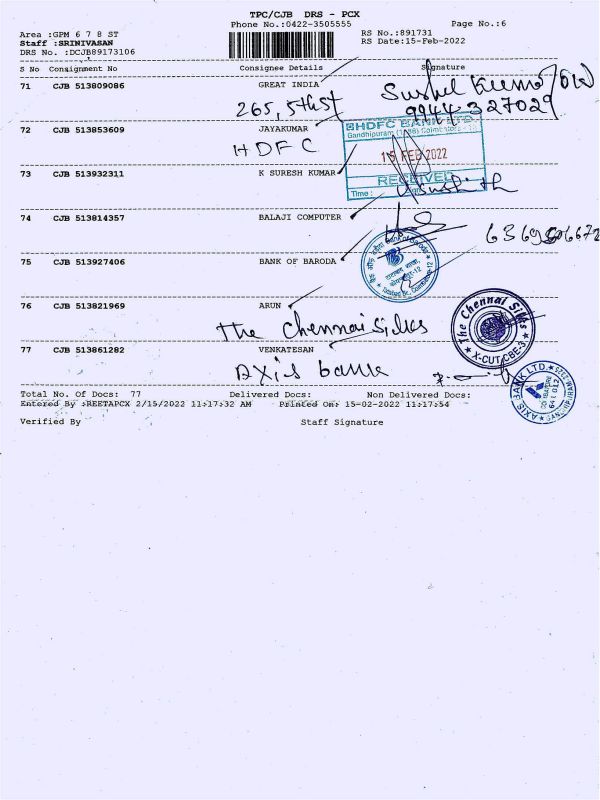 TPC/CJB DRS - PCX
Phone No.:0422-3505555
Page No.:6
Area :GPM 6 7 8 ST
RS No.:891731
Staff :SRINIVASAN
RS Date:15-Feb-2022
DRS No. :DCJB89173106
S No Consignment No Consignee Details Signature
71 CJB 513809086 GREAT INDIA
265, 5th St
Sushil Kumar
9944327029
72 CJB 513853609 JAYAKUMAR
HDFC
HDFC BANK LTD.
15 FEB 2022
RECEIVED
Time :
73 CJB 513932311 K SURESH KUMAR
74 CJB 513814357 BALAJI COMPUTER
75 CJB 513927406 BANK OF BARODA
Bank of Baroda
76 CJB 513821969 ARUN
The Chennai Silks
The Chennai Silks
X-CUT/CBE-3
77 CJB 513861282 VENKATESAN
Axis bank
AXIS BANK LTD.
Total No. Of Docs: 77 Delivered Docs: Non Delivered Docs:
Entered By :REETAPCX 2/15/2022 11:17:32 AM Printed On: 15-02-2022 11:17:54
Verified By Staff Signature